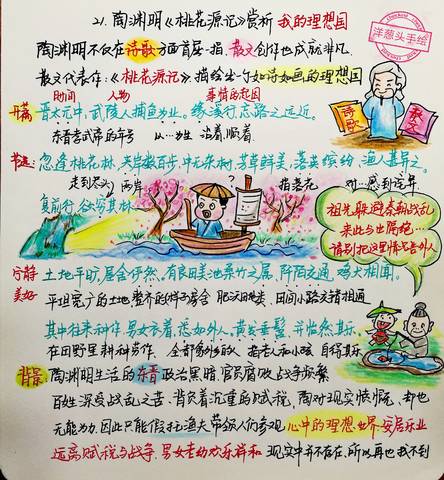 21. 陶渊明《桃花源记》赏析 我的理想国
洋葱头手绘
陶渊明不仅在诗歌方面首屈一指,散文创作也成就非凡
散文代表作:《桃花源记》描绘出一个如诗如画的理想国
时间 人物 事情的起因
开篇 晋太元中,武陵人捕鱼为业。缘溪行,忘路之远近。
东晋孝武帝的年号 以…为生 沿着,顺着
诗歌
散文
忽逢桃花林,夹岸数百步,中无杂树,芳草鲜美,落英缤纷,渔人甚异之。
走到尽头 两岸 指落花 对…感到诧异
复前行,欲穷其林。
祖先躲避秦朝战乱
来此与世隔绝…
请别把这里情况告外人
宁静
美好
土地平旷,屋舍俨然,有良田美池桑竹之属,阡陌交通,鸡犬相闻。
平坦宽广的土地 整齐的样子房舍 肥沃 田间小路交错相通
其中往来种作,男女衣着,悉如外人,黄发垂髫,并怡然自乐。
在田野里耕种劳作, 全部 的人 指老人和小孩 自得其乐
背景:陶渊明生活的东晋政治黑暗,官员腐败战争频繁
百姓深受战乱之苦,背负着沉重的赋税,陶对现实愤慨,却也
无能为力,因此只能假托渔夫带领人们参观心中的理想世界:安居乐业
远离赋税与战争,男女老幼欢乐祥和 现实中并不存在,所以再也找不到